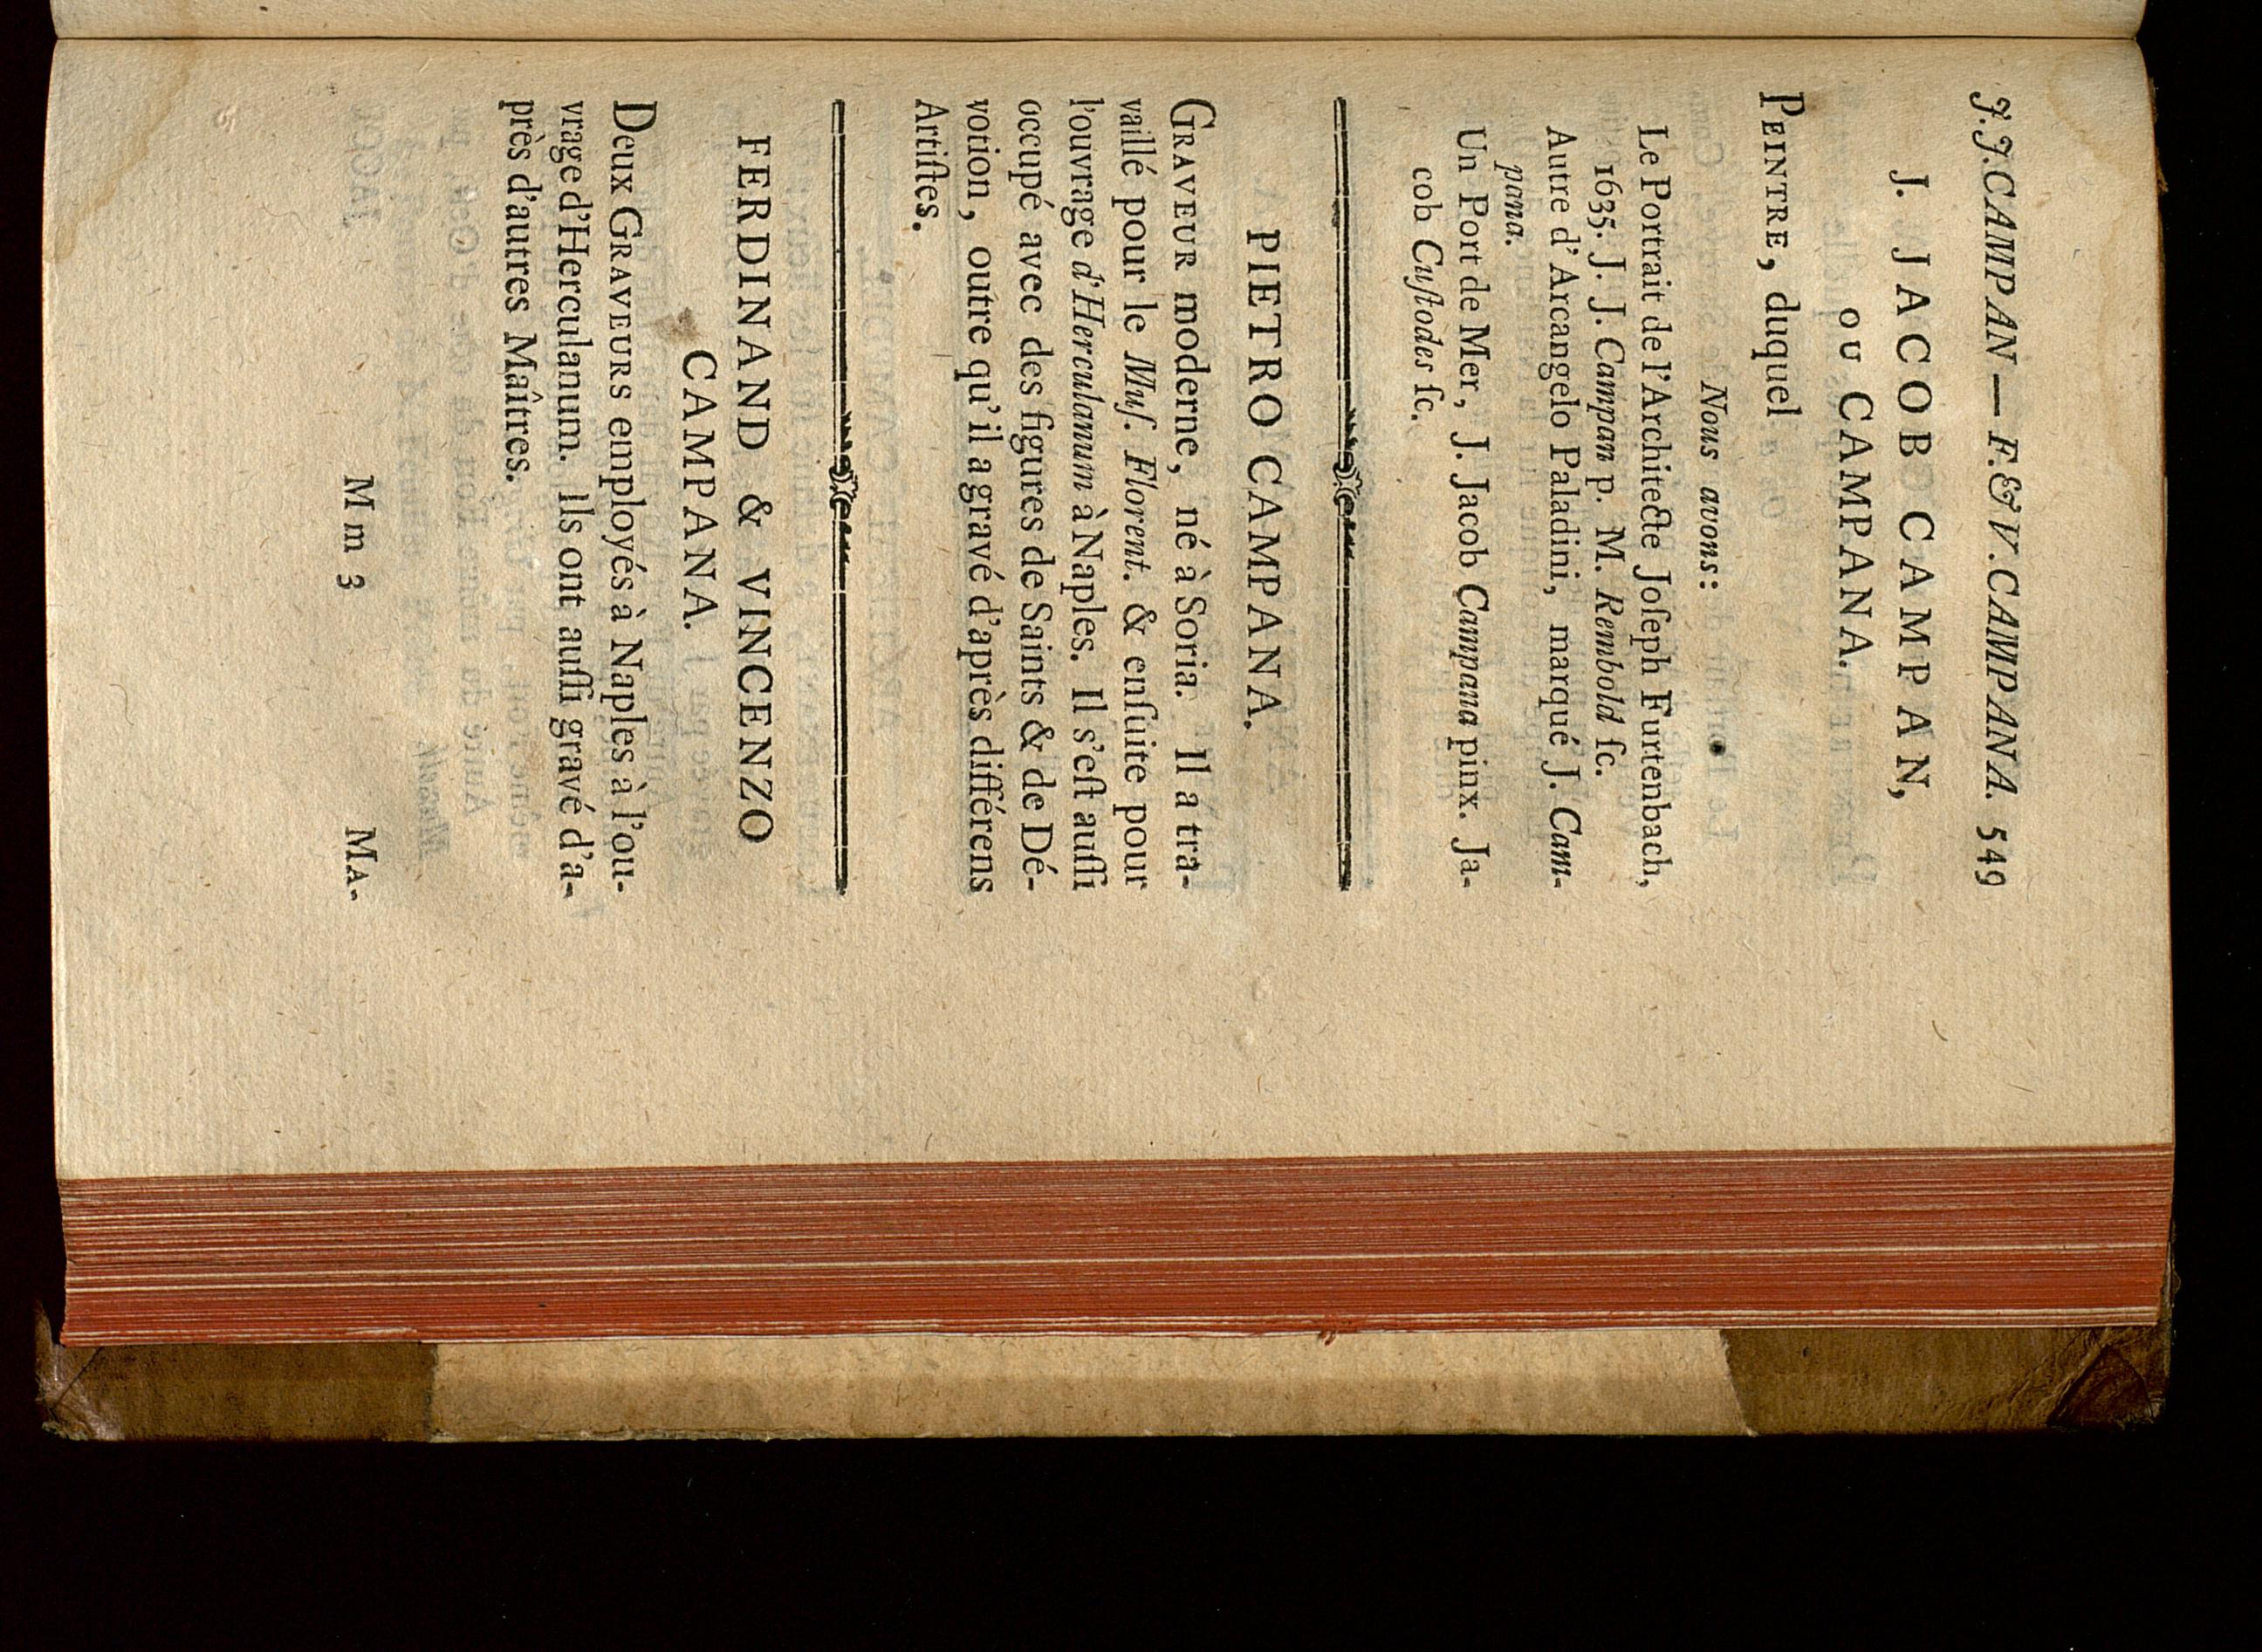 J. J. CAMPAN — F. & V. CAMPANA. 549
J. JACOB CAMPAN,
OU CAMPANA.
PEINTRE, duquel
Nous avons:
Le Portrait de l'Architecte Joſeph Furtenbach,
1635. J. J. Campan p. M. Rembold ſc.
Autre d'Arcangelo Paladini, marqué J. Cam-
pana.
Un Port de Mer, J. Jacob Campana pinx. Ja-
cob Cuſtodes ſc.
PIETRO CAMPANA.
GRAVEUR moderne, né à Soria. Il a tra-
vaillé pour le Muſ. Florent. & enſuite pour
l'ouvrage d'Herculanum à Naples. Il s'eſt auſſi
occupé avec des figures de Saints & de Dé-
votion, outre qu'il a gravé d'après différens
Artiſtes.
FERDINAND & VINCENZO
CAMPANA.
Deux GRAVEURS employés à Naples à l'ou-
vrage d'Herculanum. Ils ont auſſi gravé d'a-
près d'autres Maîtres.
M m 3 MA-